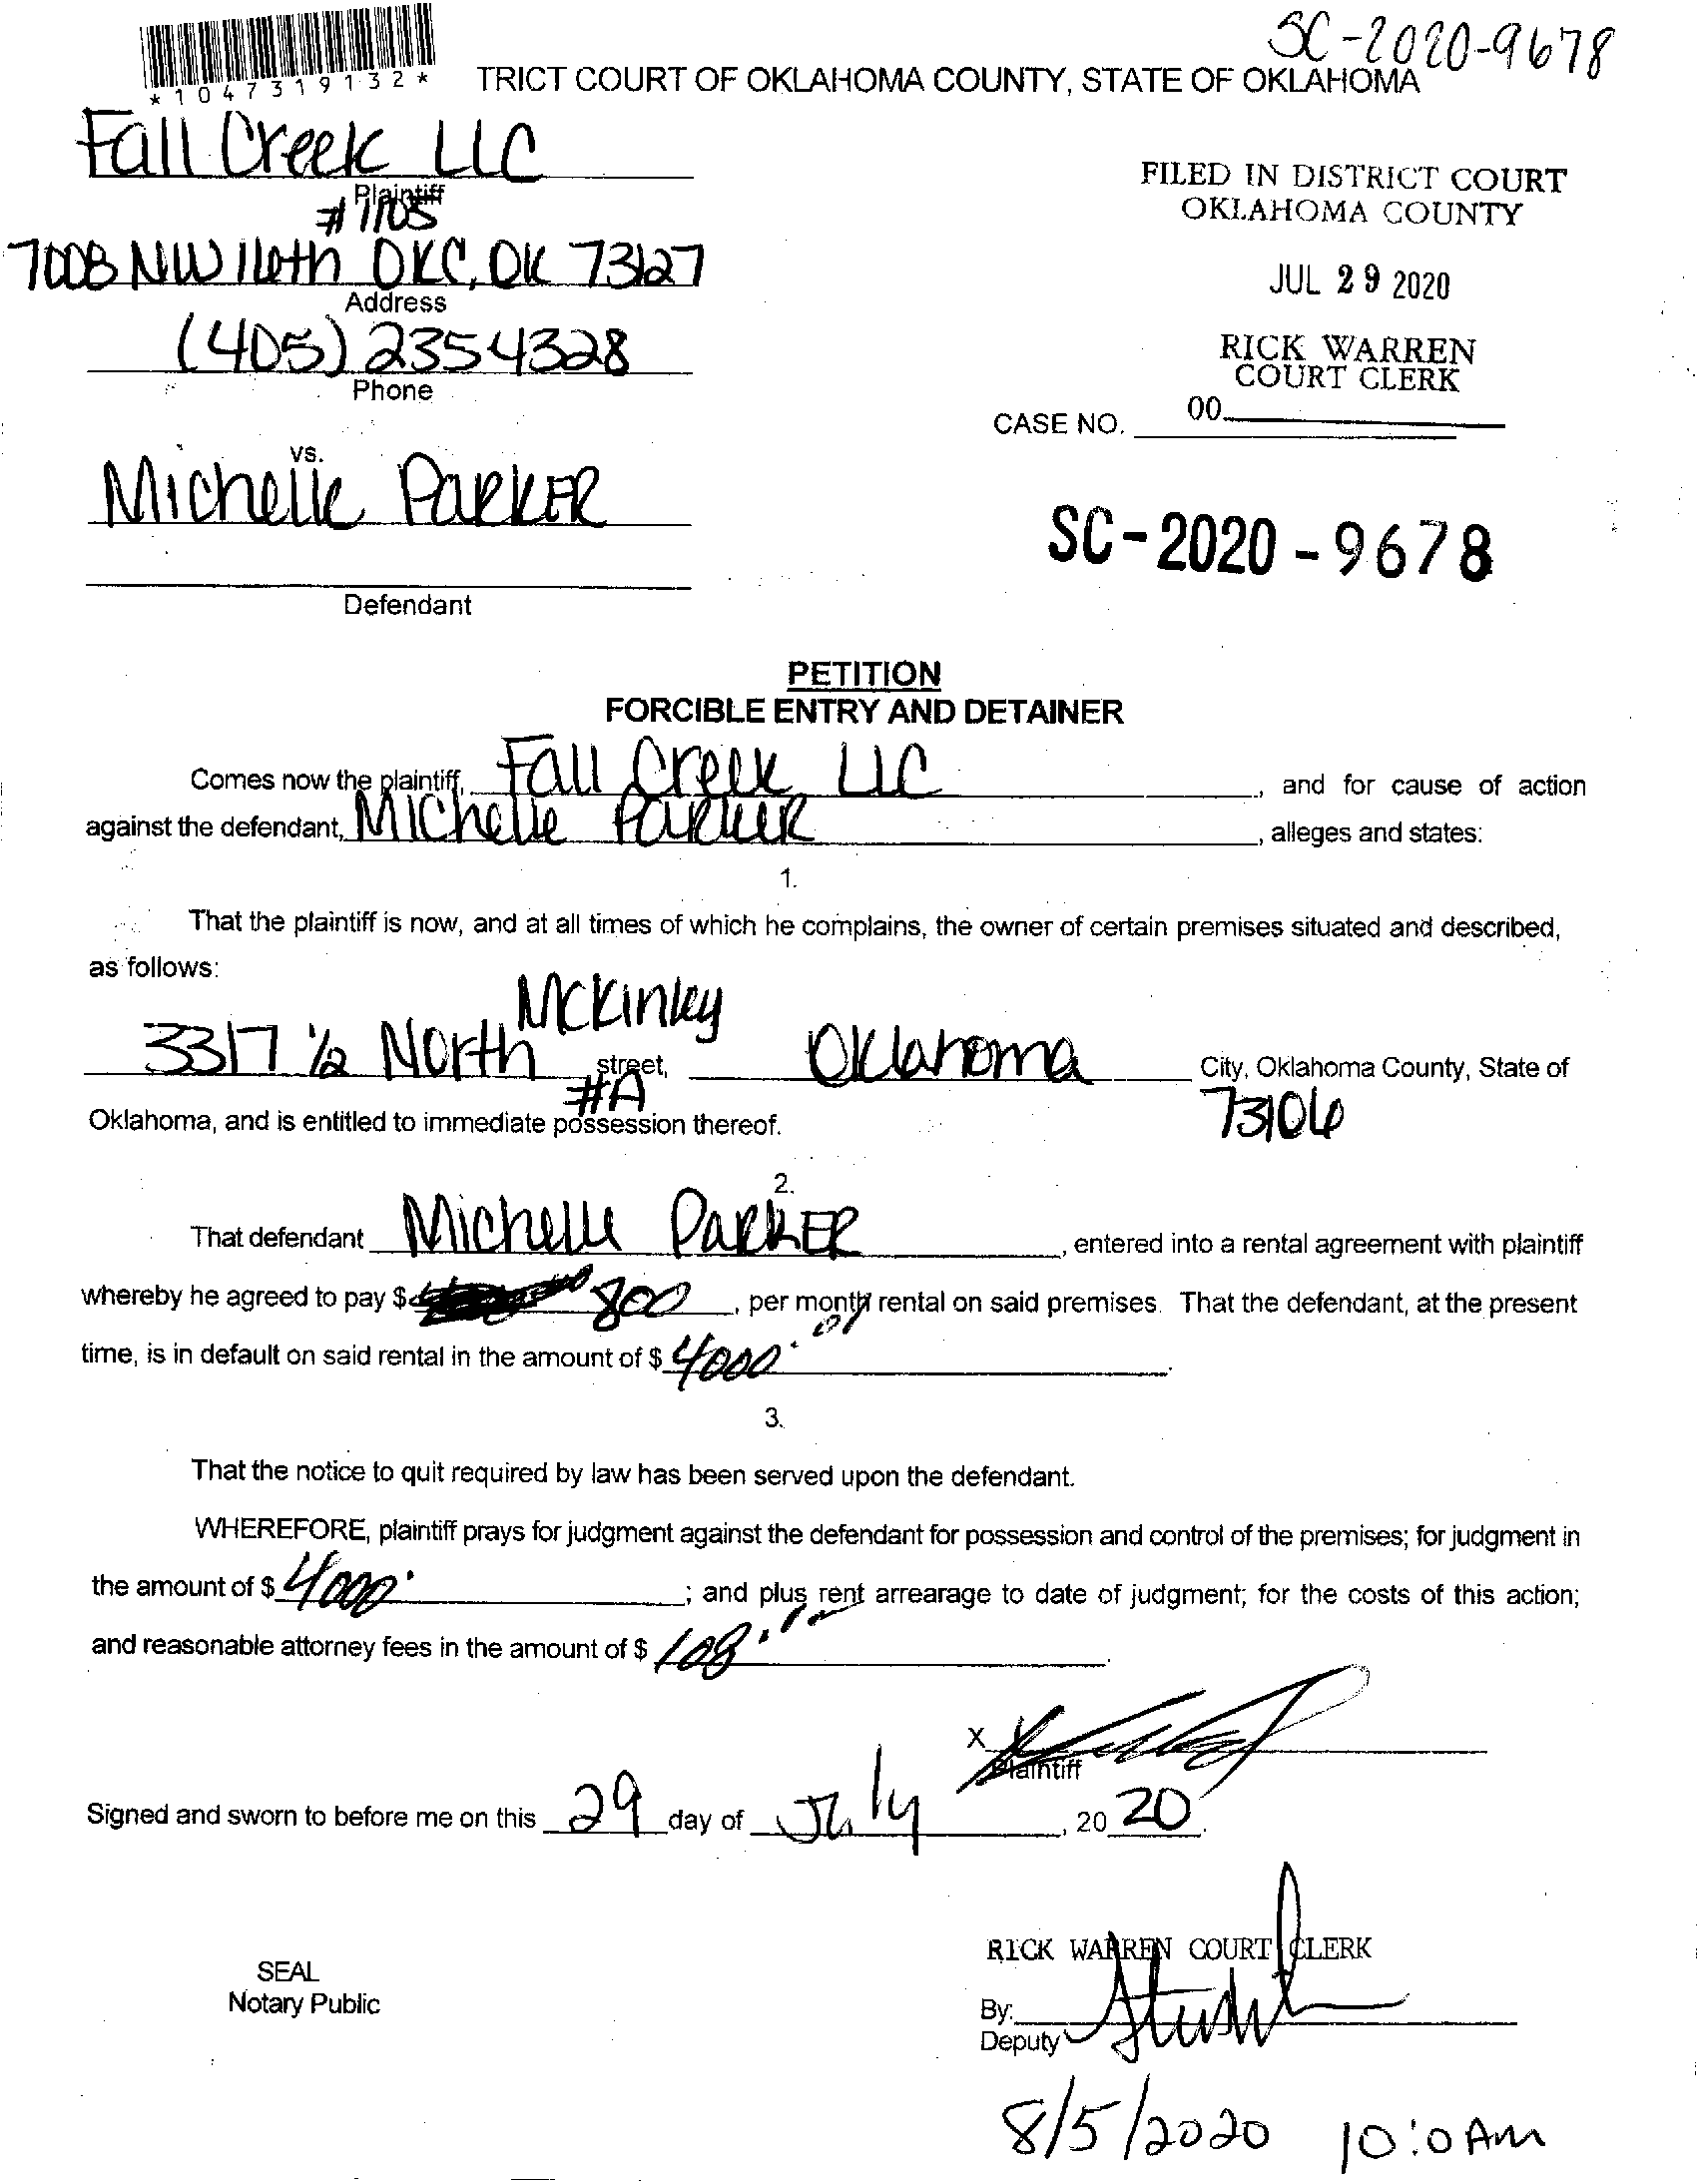 SC-2020-9678
*1047319132*
TRICT COURT OF OKLAHOMA COUNTY, STATE OF OKLAHOMA
Fall Creek LLC
Plaintiff
#1105
7008 NW 16th OKC, OK 73127
Address
(405) 235 4328
Phone
FILED IN DISTRICT COURT
OKLAHOMA COUNTY
JUL 29 2020
RICK WARREN
COURT CLERK
CASE NO. 00
vs.
Michelle Parker
Defendant
SC-2020-9678
PETITION
FORCIBLE ENTRY AND DETAINER
Comes now the plaintiff, Fall Creek LLC, and for cause of action
against the defendant, Michelle Parker, alleges and states:
1.
That the plaintiff is now, and at all times of which he complains, the owner of certain premises situated and described,
as follows:
McKinley
3317 1/2 North street, Oklahoma City, Oklahoma County, State of
#A 73106
Oklahoma, and is entitled to immediate possession thereof.
2.
That defendant Michelle Parker, entered into a rental agreement with plaintiff
whereby he agreed to pay $ 800, per month rental on said premises. That the defendant, at the present
time, is in default on said rental in the amount of $ 4000.
3.
That the notice to quit required by law has been served upon the defendant.
WHEREFORE, plaintiff prays for judgment against the defendant for possession and control of the premises; for judgment in
the amount of $ 4000.; and plus rent arrearage to date of judgment; for the costs of this action;
and reasonable attorney fees in the amount of $ 108.
X
Plaintiff
Signed and sworn to before me on this 29 day of July, 20 20.
RICK WARREN COURT CLERK
SEAL
Notary Public
By:
Deputy
8/5/2020 10:0 AM